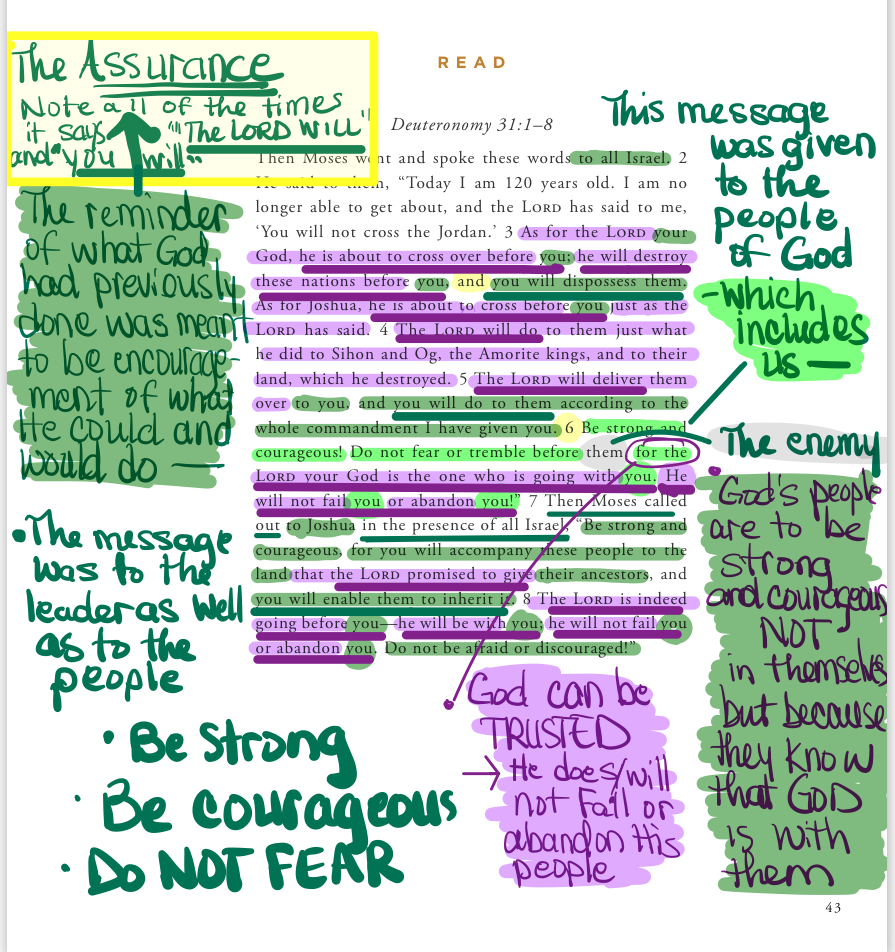 The Assurance
Note all of the times
it says "The LORD WILL"
and "you will"
READ
Deuteronomy 31:1–8
Then Moses went and spoke these words to all Israel. 2
He said to them, “Today I am 120 years old. I am no
longer able to get about, and the LORD has said to me,
‘You will not cross the Jordan.’ 3 As for the LORD your
God, he is about to cross over before you; he will destroy
these nations before you, and you will dispossess them.
As for Joshua, he is about to cross before you just as the
LORD has said. 4 The LORD will do to them just what
he did to Sihon and Og, the Amorite kings, and to their
land, which he destroyed. 5 The LORD will deliver them
over to you, and you will do to them according to the
whole commandment I have given you. 6 Be strong and
courageous! Do not fear or tremble before them, for the
LORD your God is the one who is going with you. He
will not fail you or abandon you!” 7 Then Moses called
out to Joshua in the presence of all Israel, “Be strong and
courageous, for you will accompany these people to the
land that the LORD promised to give their ancestors, and
you will enable them to inherit it. 8 The LORD is indeed
going before you—he will be with you; he will not fail you
or abandon you. Do not be afraid or discouraged!”
This message
was given
to the
people
of God
- which
includes
us —
The enemy
God's people
are to be
strong
and courageous
NOT
in themselves
but because
they know
that GOD
is with
them
The reminder
of what God
had previously
done was meant
to be encourage-
ment of what
He could and
would do —
• The message
was to the
leader as well
as to the
people
• Be Strong
• Be courageous
• Do NOT FEAR
God can be
TRUSTED
→ He does/will
not Fail or
abandon His
people
43